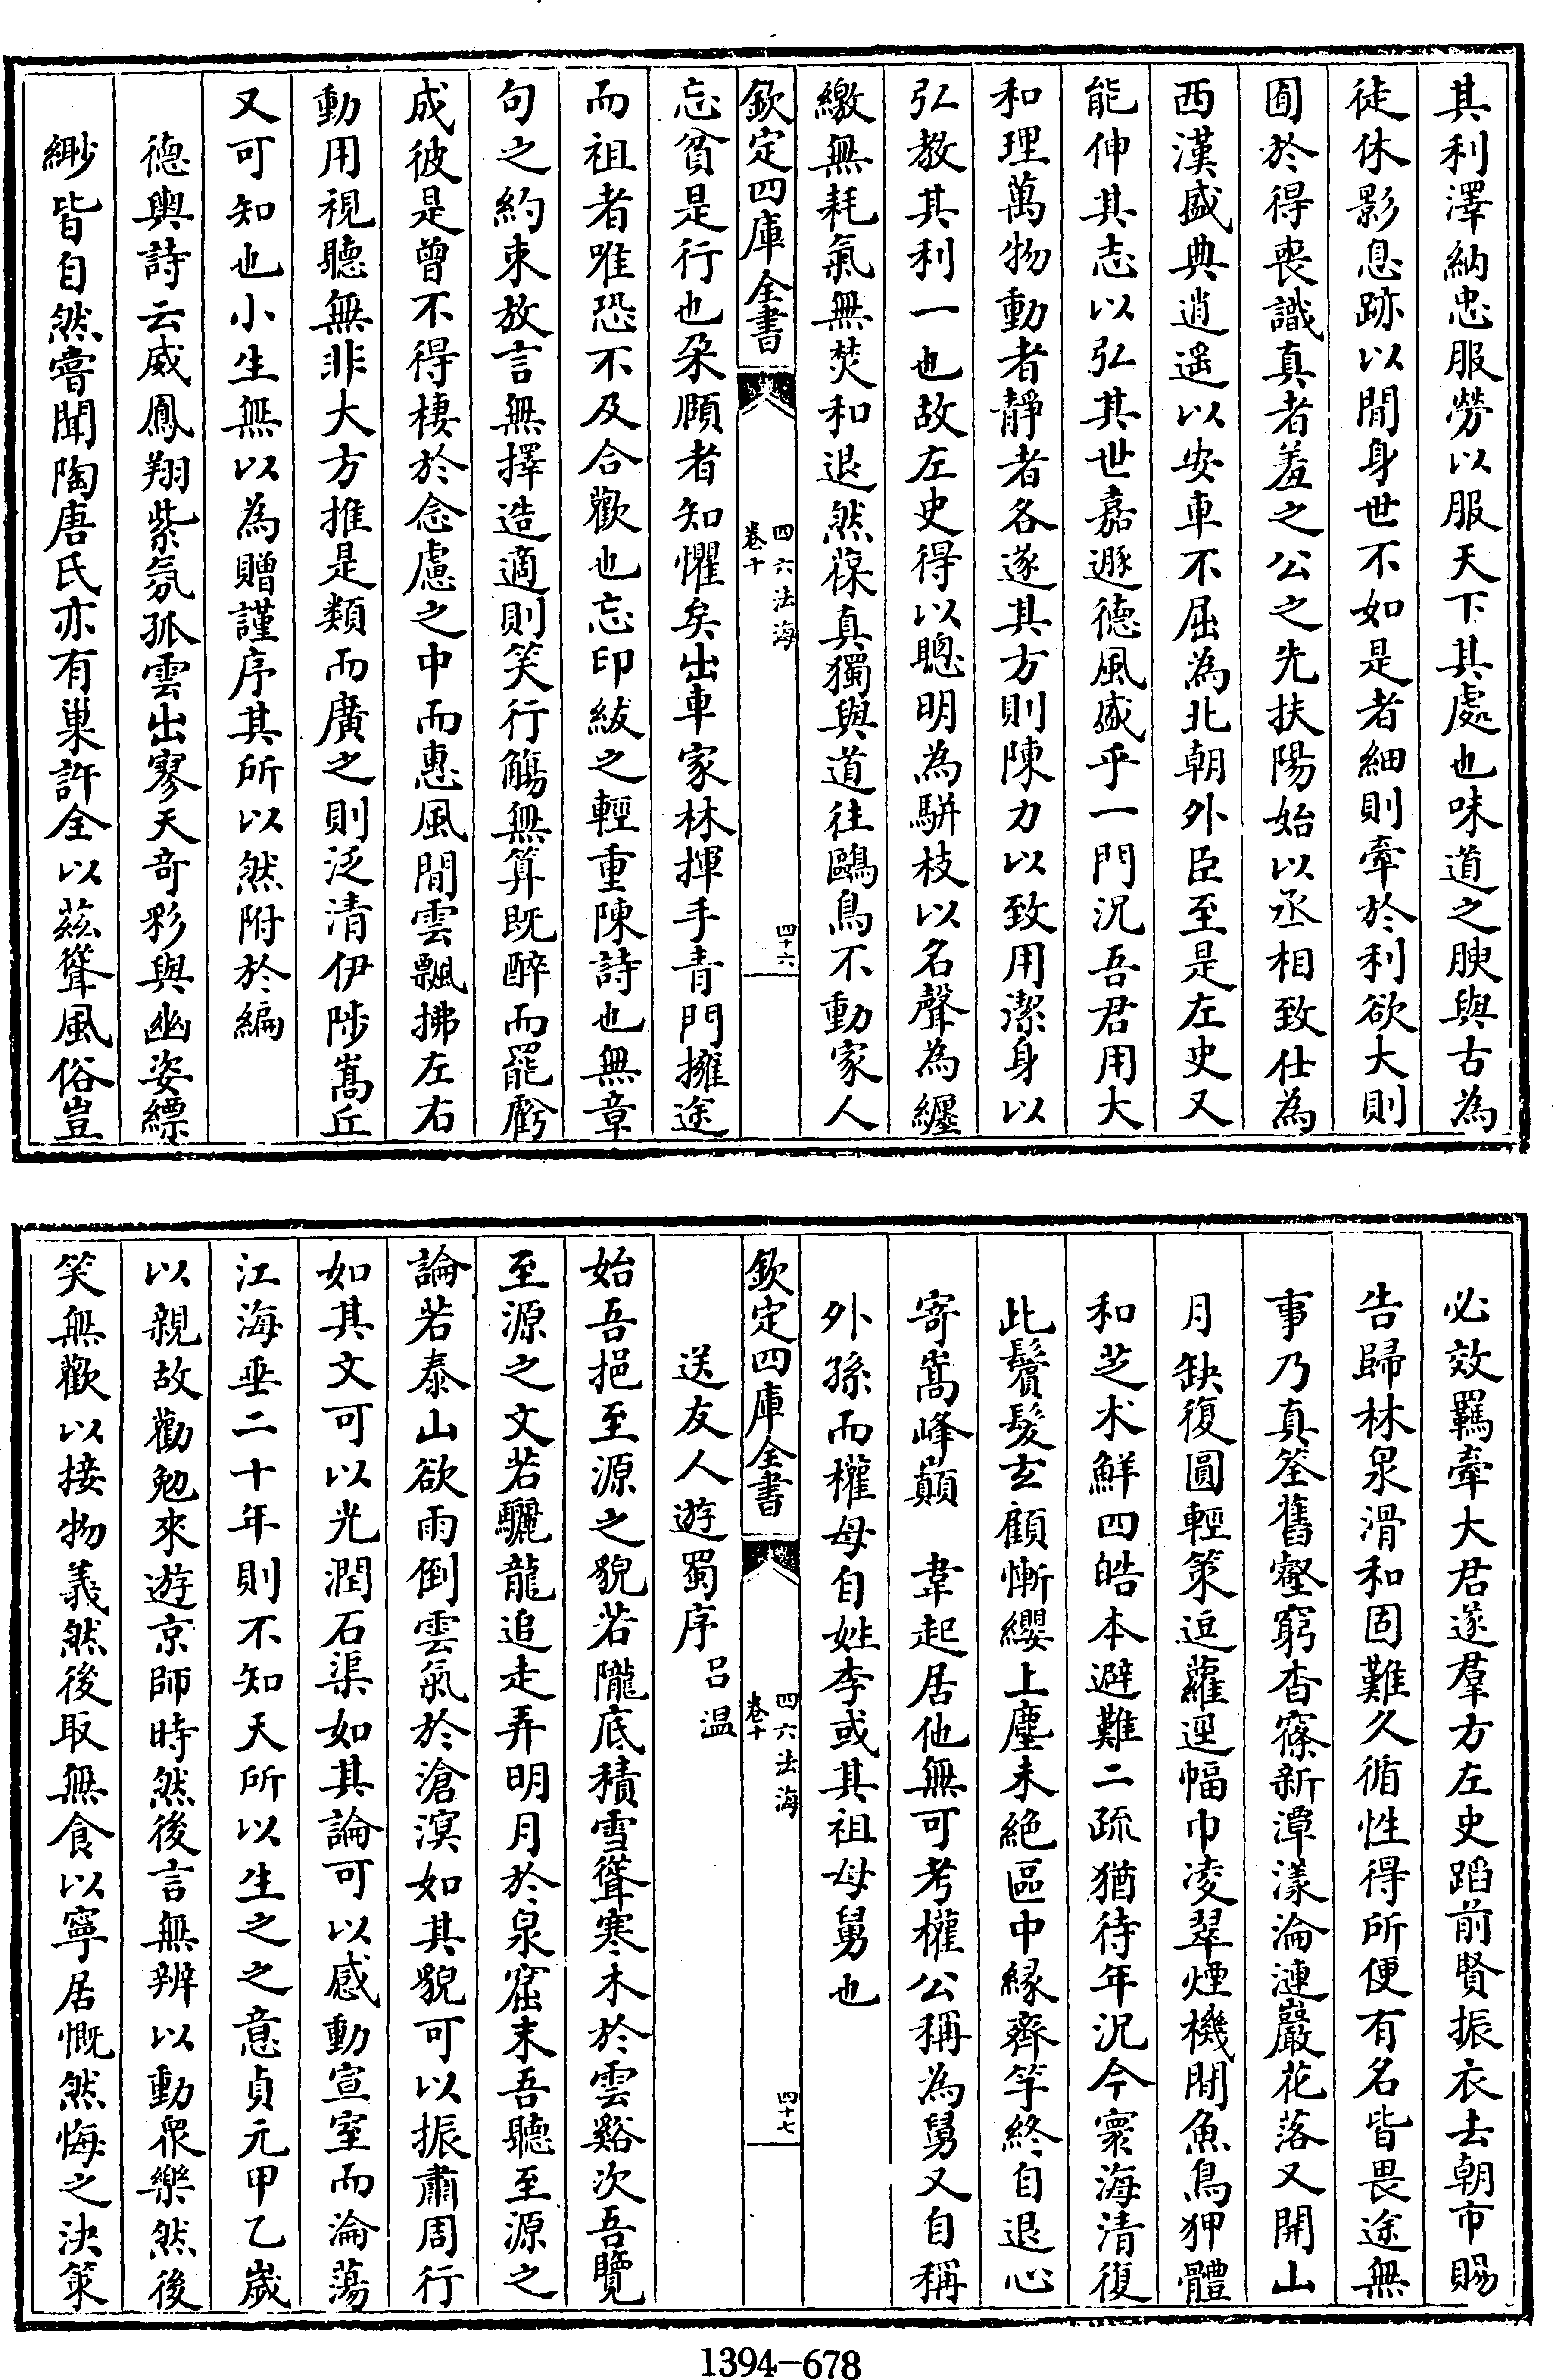 其利澤納忠服勞以服天下其處也味道之腴與古為
徒休影息跡以閒身世不如是者細則牽於利欲大則
囿於得喪識真者羞之公之先扶陽始以丞相致仕為
西漢盛典逍遥以安車不屈為北朝外臣至是左史又
能伸其志以弘其世嘉遯德風盛乎一門況吾君用大
和理萬物動者靜者各遂其方則陳力以致用潔身以
弘教其利一也故左史得以聰明為駢枝以名聲為纆
繳無耗氣無焚和退然葆真獨與道往鷗鳥不動家人
欽定四庫全書
四六法海
卷十
四十六
忘貧是行也朶頤者知懼矣出車家林揮手青門擁途
而祖者唯恐不及合歡也忘印紱之輕重陳詩也無章
句之約束放言無擇造適則笑行觴無算既醉而罷虧
成彼是曾不得棲於念慮之中而惠風閒雲飄拂左右
動用視聽無非大方推是類而廣之則泛清伊陟嵩丘
又可知也小生無以為贈謹序其所以然附於編
德輿詩云威鳳翔紫氛孤雲出寥天奇彩與幽姿縹
緲皆自然嘗聞陶唐氏亦有巢許全以茲聳風俗豈
必效羈牽大君遂羣方左史蹈前賢振衣去朝市賜
告歸林泉滑和固難久循性得所便有名皆畏途無
事乃真筌舊壑窮杳窱新潭漾淪漣巖花落又開山
月缺復圓輕策逗蘿逕幅巾凌翠煙機閒魚鳥狎體
和芝朮鮮四皓本避難二疏猶待年況今寰海清復
此鬢髮玄顧慚纓上塵未絕區中緣齊竽終自退心
寄嵩峰巔　韋起居他無可考權公稱為舅又自稱
外孫而權母自姓李或其祖母舅也
欽定四庫全書
四六法海
卷十
四十七
送友人遊蜀序　吕温
始吾挹至源之貌若隴底積雪聳寒木於雲谿次吾覽
至源之文若驪龍追走弄明月於泉窟末吾聽至源之
論若泰山欲雨倒雲氣於滄溟如其貌可以振肅周行
如其文可以光潤石渠如其論可以感動宣室而淪蕩
江海垂二十年則不知天所以生之之意貞元甲乙歲
以親故勸勉來遊京師時然後言無辨以動衆樂然後
笑無歡以接物義然後取無食以寧居慨然悔之決策
1394-678